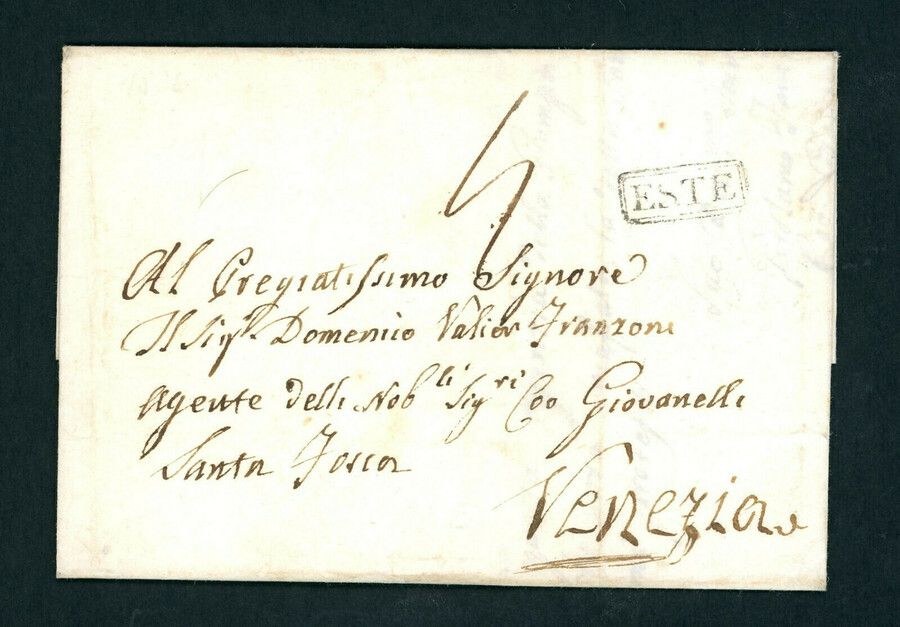 ESTE
Al Pregiatissimo Signore
Il Sigr. Domenico Valier Franzoni
Agente delli Nobli Sigri Coo Giovanelli
Santa Fosca
Venezia